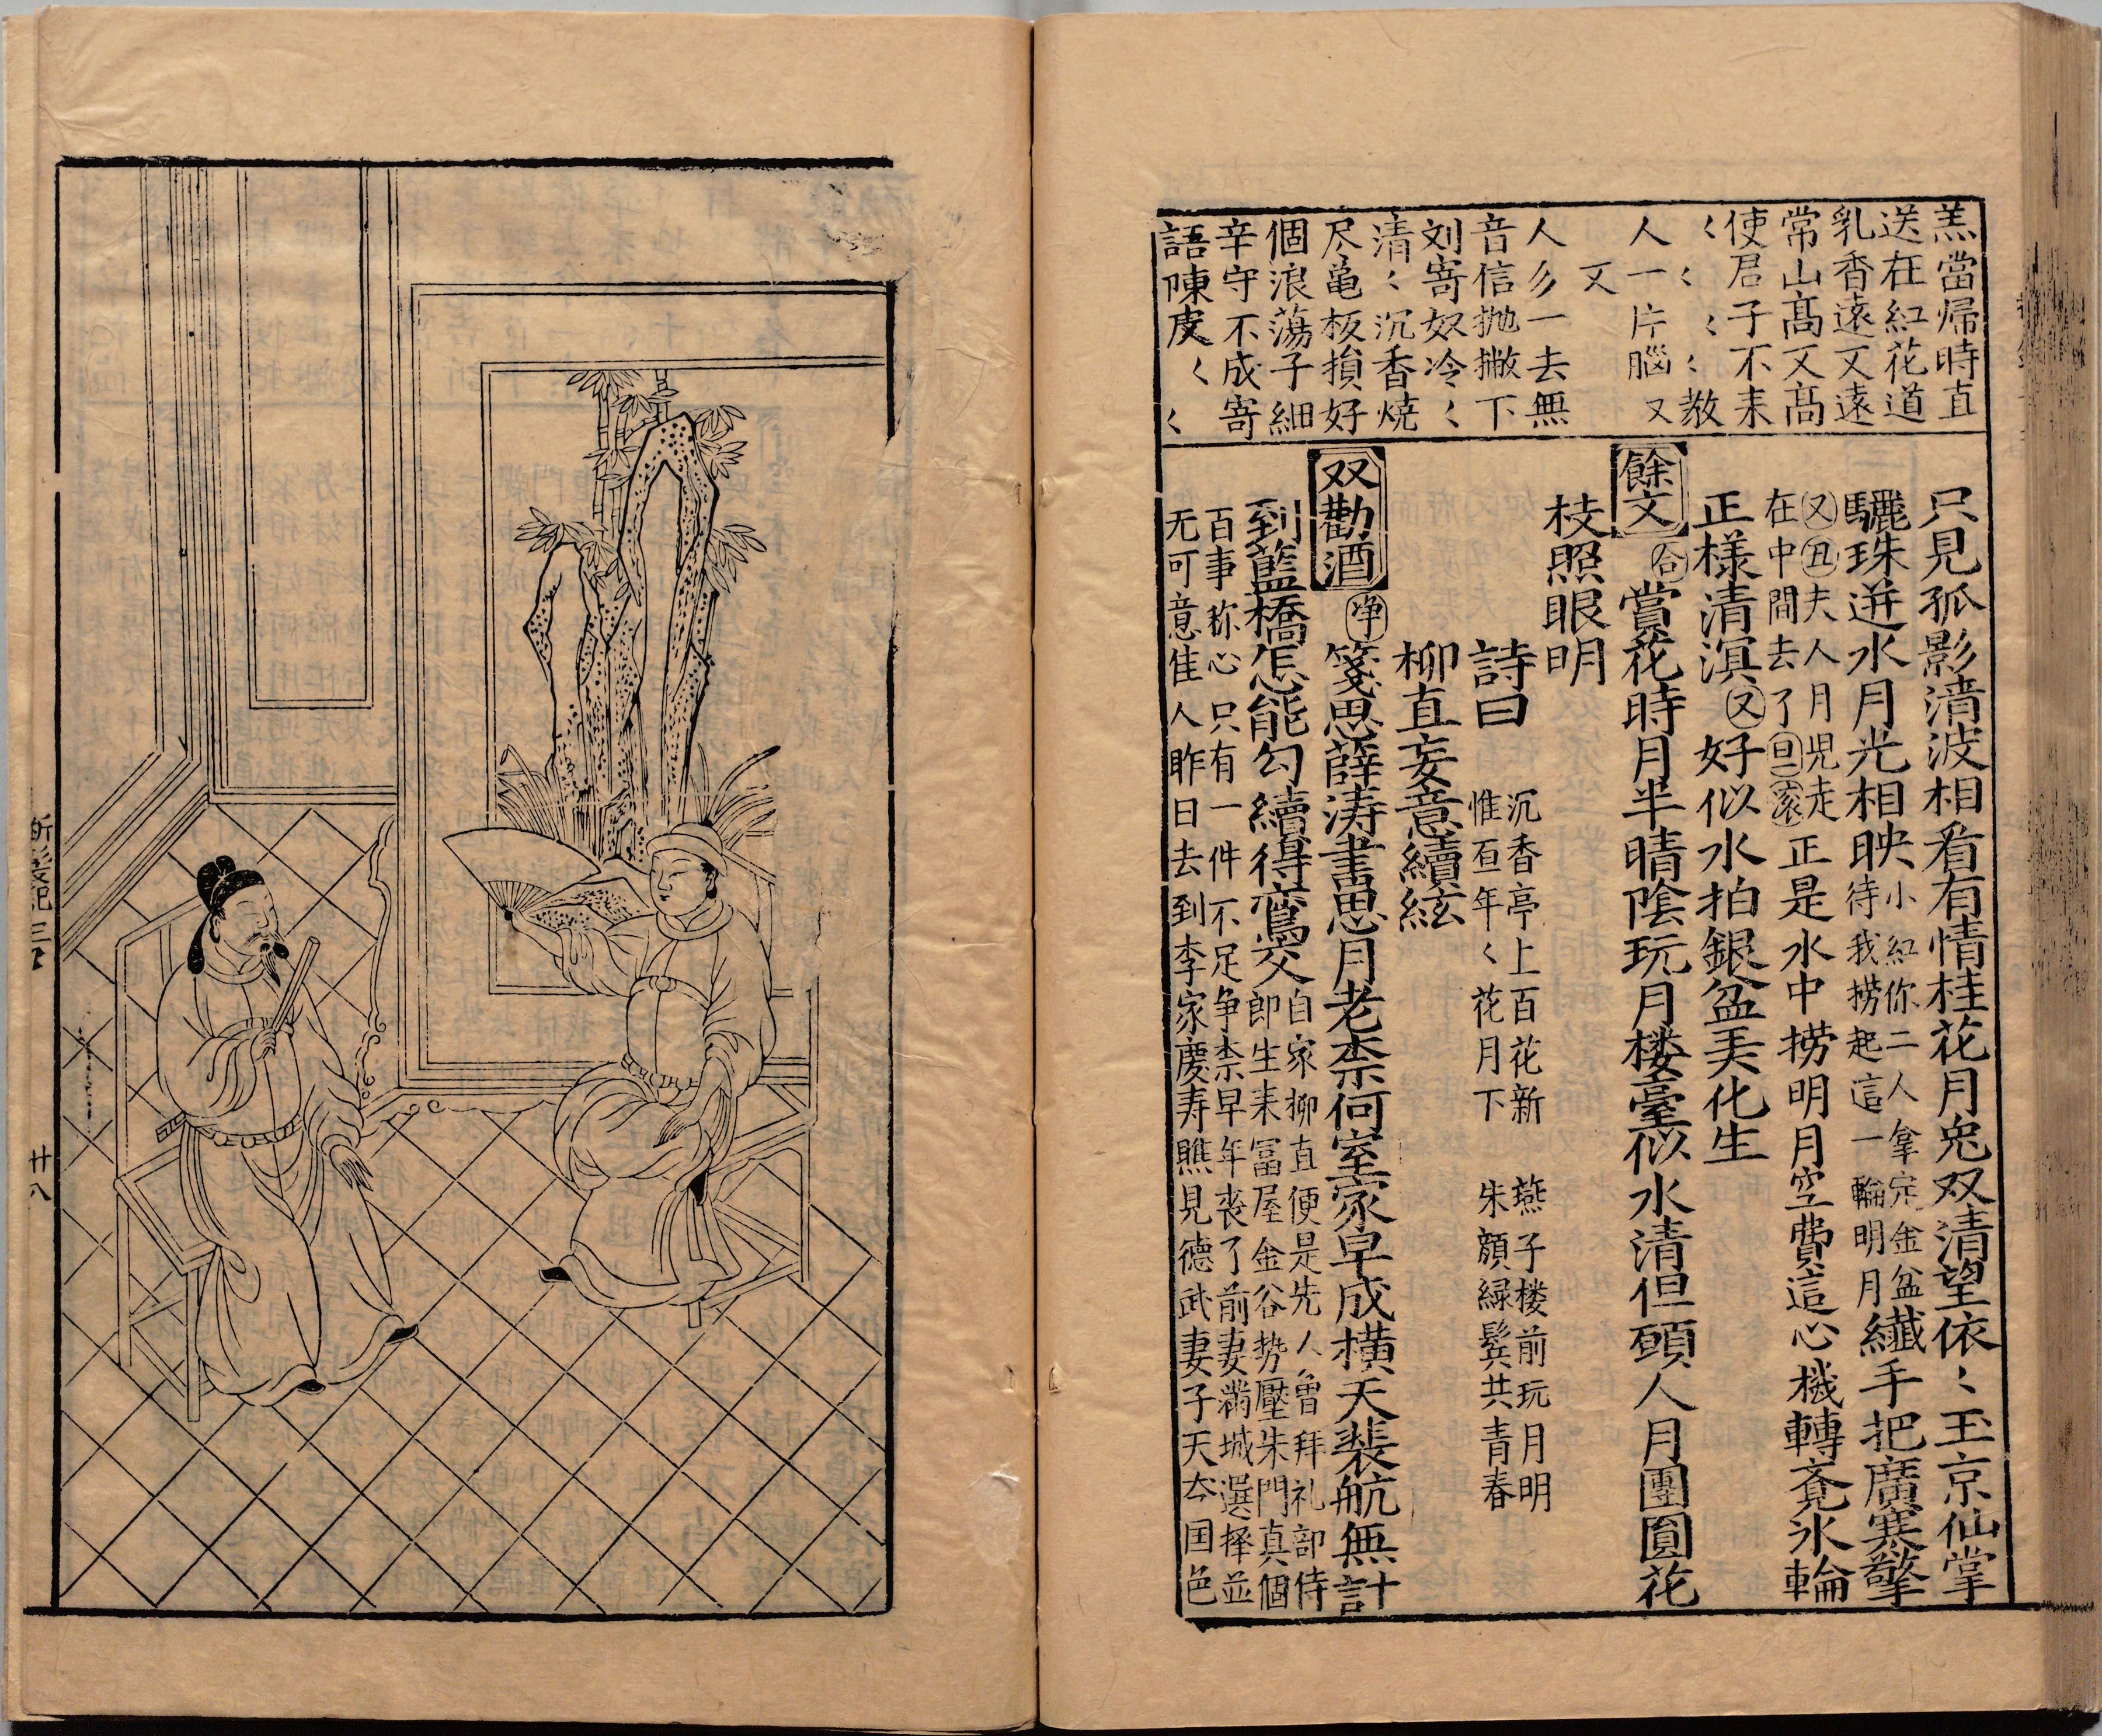 羔當帰時直
送在紅花道
乳香遠又遠
常山髙又髙
使君子不来
〻〻〻〻教
人一片腦又
又
人 一去無
音信抛撇下
刘寄奴冷〻
清〻沉香焼
尽亀板損好
個浪蕩子細
辛守不成寄
語陳皮〻〻
只見孤影清波相看有情桂花月兔双清望依〻玉京仙掌
驪珠迸水月光相映小紅你二人拿定金盆
待我捞起這一輪明月纎手把廣寒擎
又丑夫人月児走
在中間去了旦滚正是水中捞明月空費這心機轉竟氷輪
正様清溟又好似水拍銀盆美化生
餘文 合賞花時月半晴陰玩月楼臺似水清但願人月團圓花
枝照眼明
詩曰 沉香亭上百花新 燕子楼前玩月明
惟 百年〻花月下 朱顔緑鬂共青春
柳直妄意續絃
双勸酒 净箋思薛涛書思月老柰何室家早成横天裴航無計
到藍橋怎能勾續得鸞交自家柳直便是先人曽拜礼部侍
即生来富屋金谷势壓朱門真個
百事称心只有一件不足争柰早年丧了前妻满城選擇並
无可意佳人昨日去到李家慶寿瞧見德武妻子天 囯色
断髮記 三
廿八